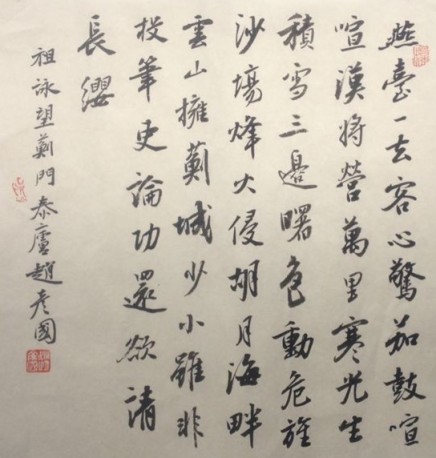 燕臺一去客心驚笳鼓喧
喧漢將營萬里寒光生
積雪三邊曙色動危旌
沙場烽火侵胡月海畔
雲山擁薊城少小雖非
投筆吏論功還欲請
長纓
祖詠望薊門泰廬趙彥國